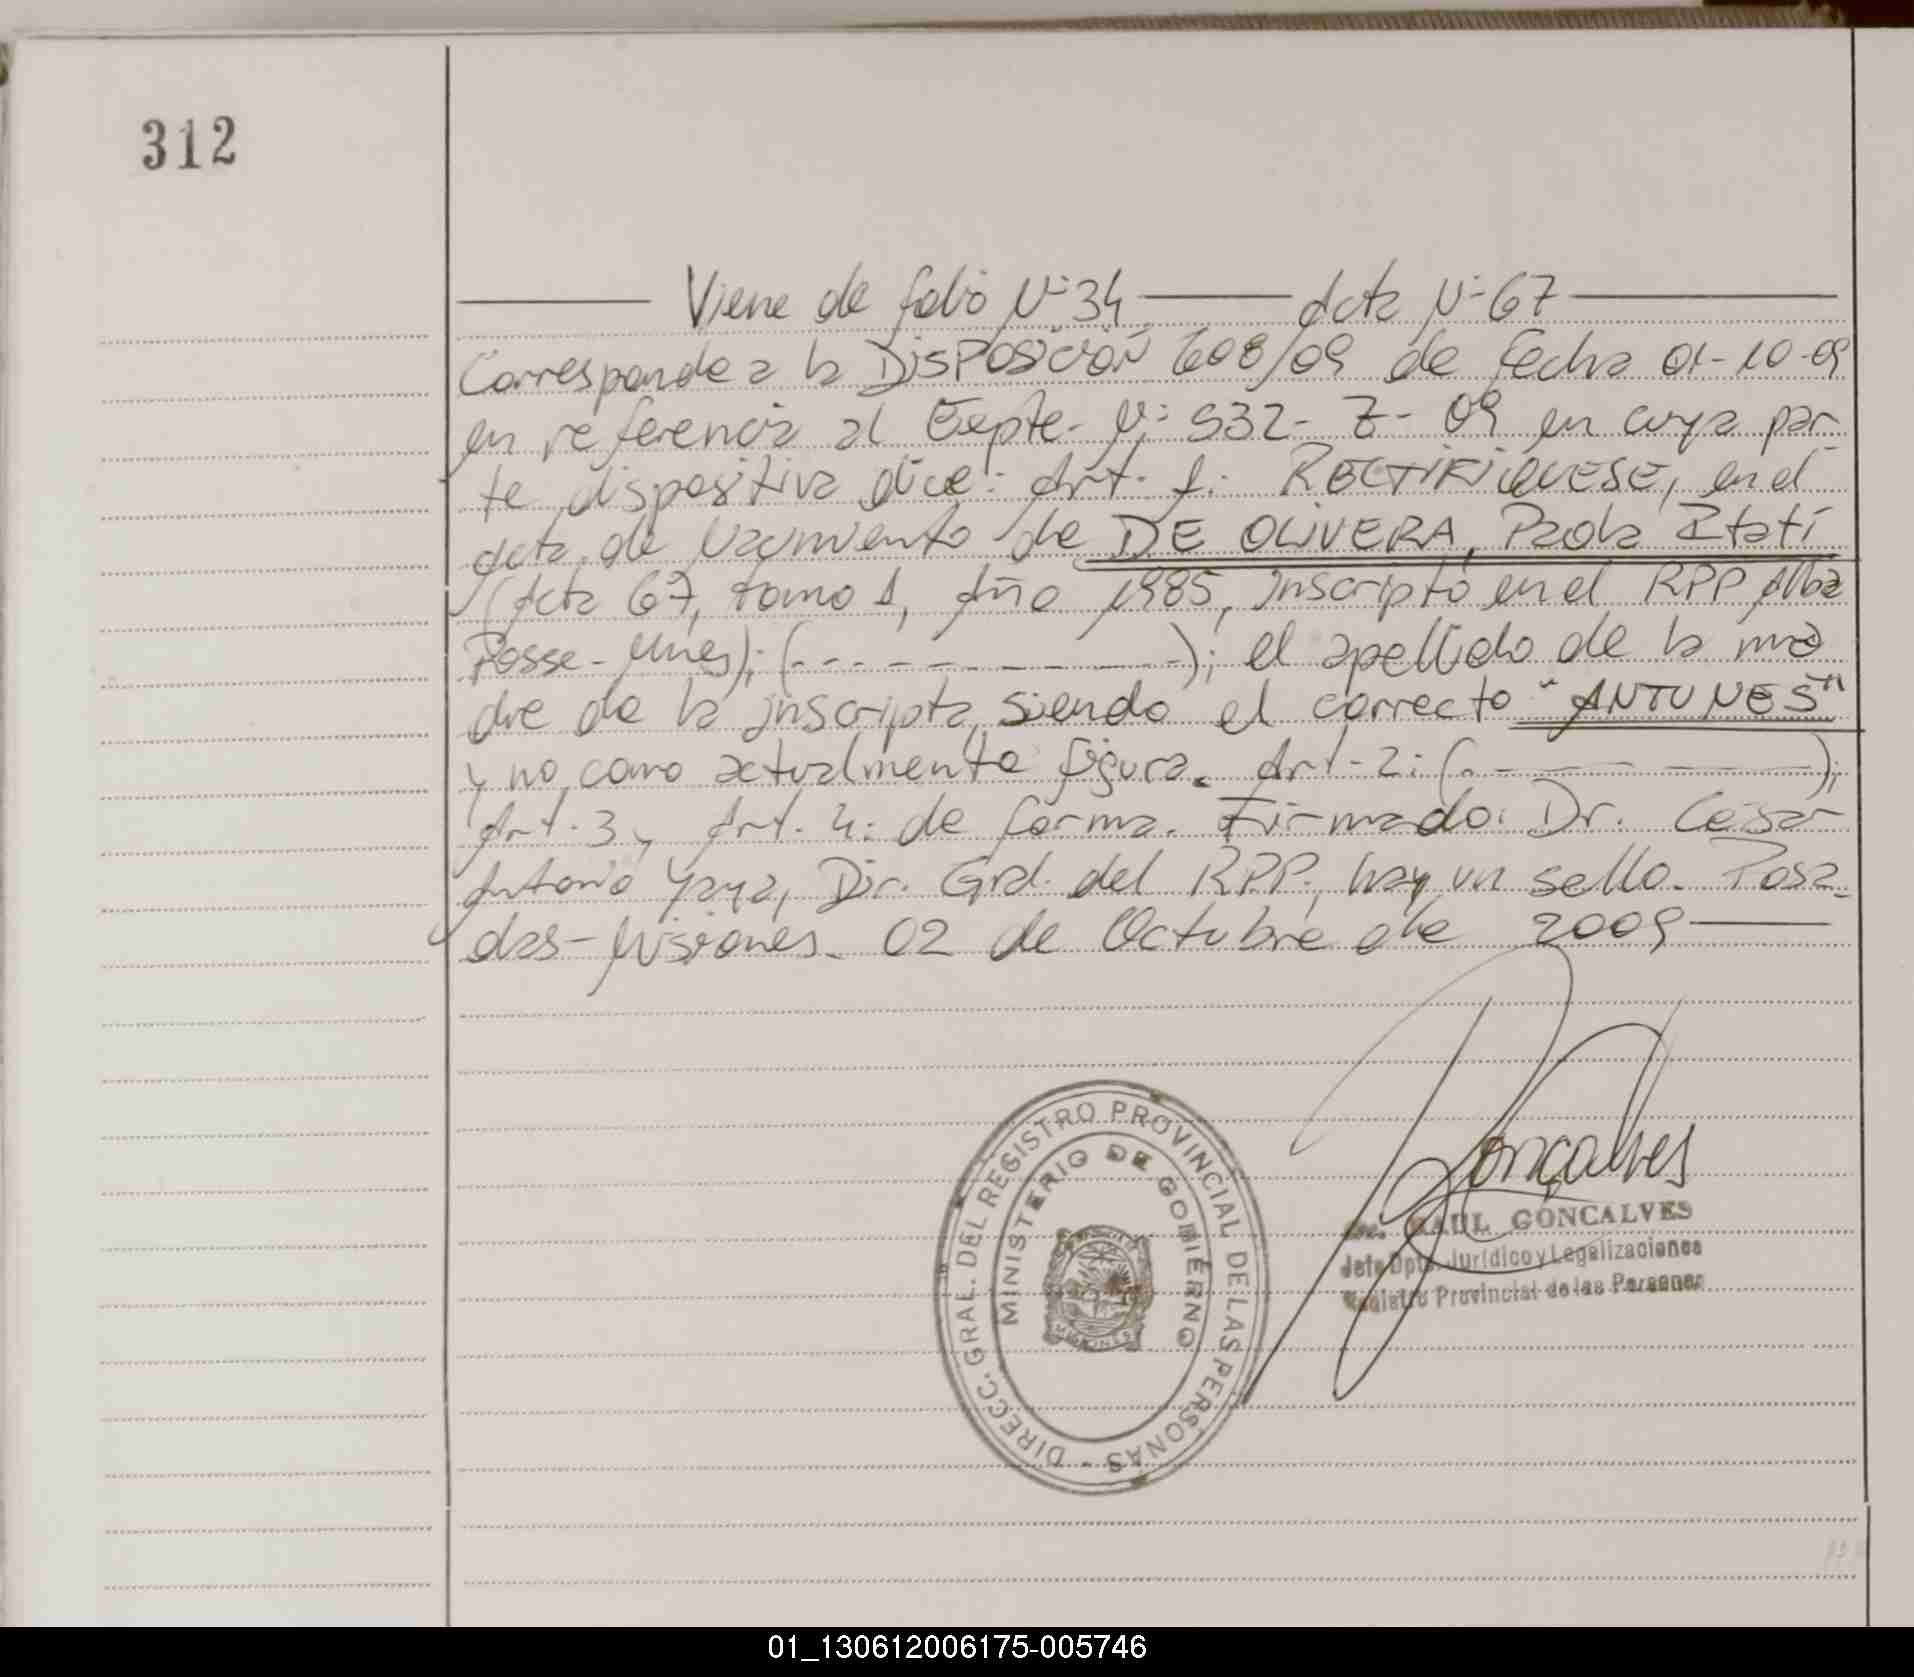 312
Viene de folio Nº 34 acta Nº 67
Corresponde a la DISPOSICIÓN 608/09 de fecha 01-10-09
en referencia al Expte. Nº 532-Z-09 en cuya par
te dispositiva dice: Art. 1: RECTIFIQUESE, en el
acta de Nacimiento de DE OLIVERA, Paola Itatí
(Acta 67, tomo 1, Año 1985, inscripto en el RPP Alba
Posse - Mnes); (- - - - - - - - -); el apellido de la ma
dre de la inscripta, siendo el correcto "ANTUNES"
y no como actualmente figura. Art-2: (- - - - -);
Art. 3 y Art. 4: de forma. Firmado: Dr. Cesar
Antonio Yaya, Dir. Gral. del R.P.P., hay un sello. Posa-
das-Misiones. 02 de Octubre de 2009
Gonçalves
RAUL GONCALVES
Jefe Dpto. Jurídico y Legalizaciones
Registro Provincial de las Personas
DIRECC. GRAL. DEL REGISTRO PROVINCIAL DE LAS PERSONAS -
MINISTERIO DE GOBIERNO
MISIONES
01_130612006175-005746